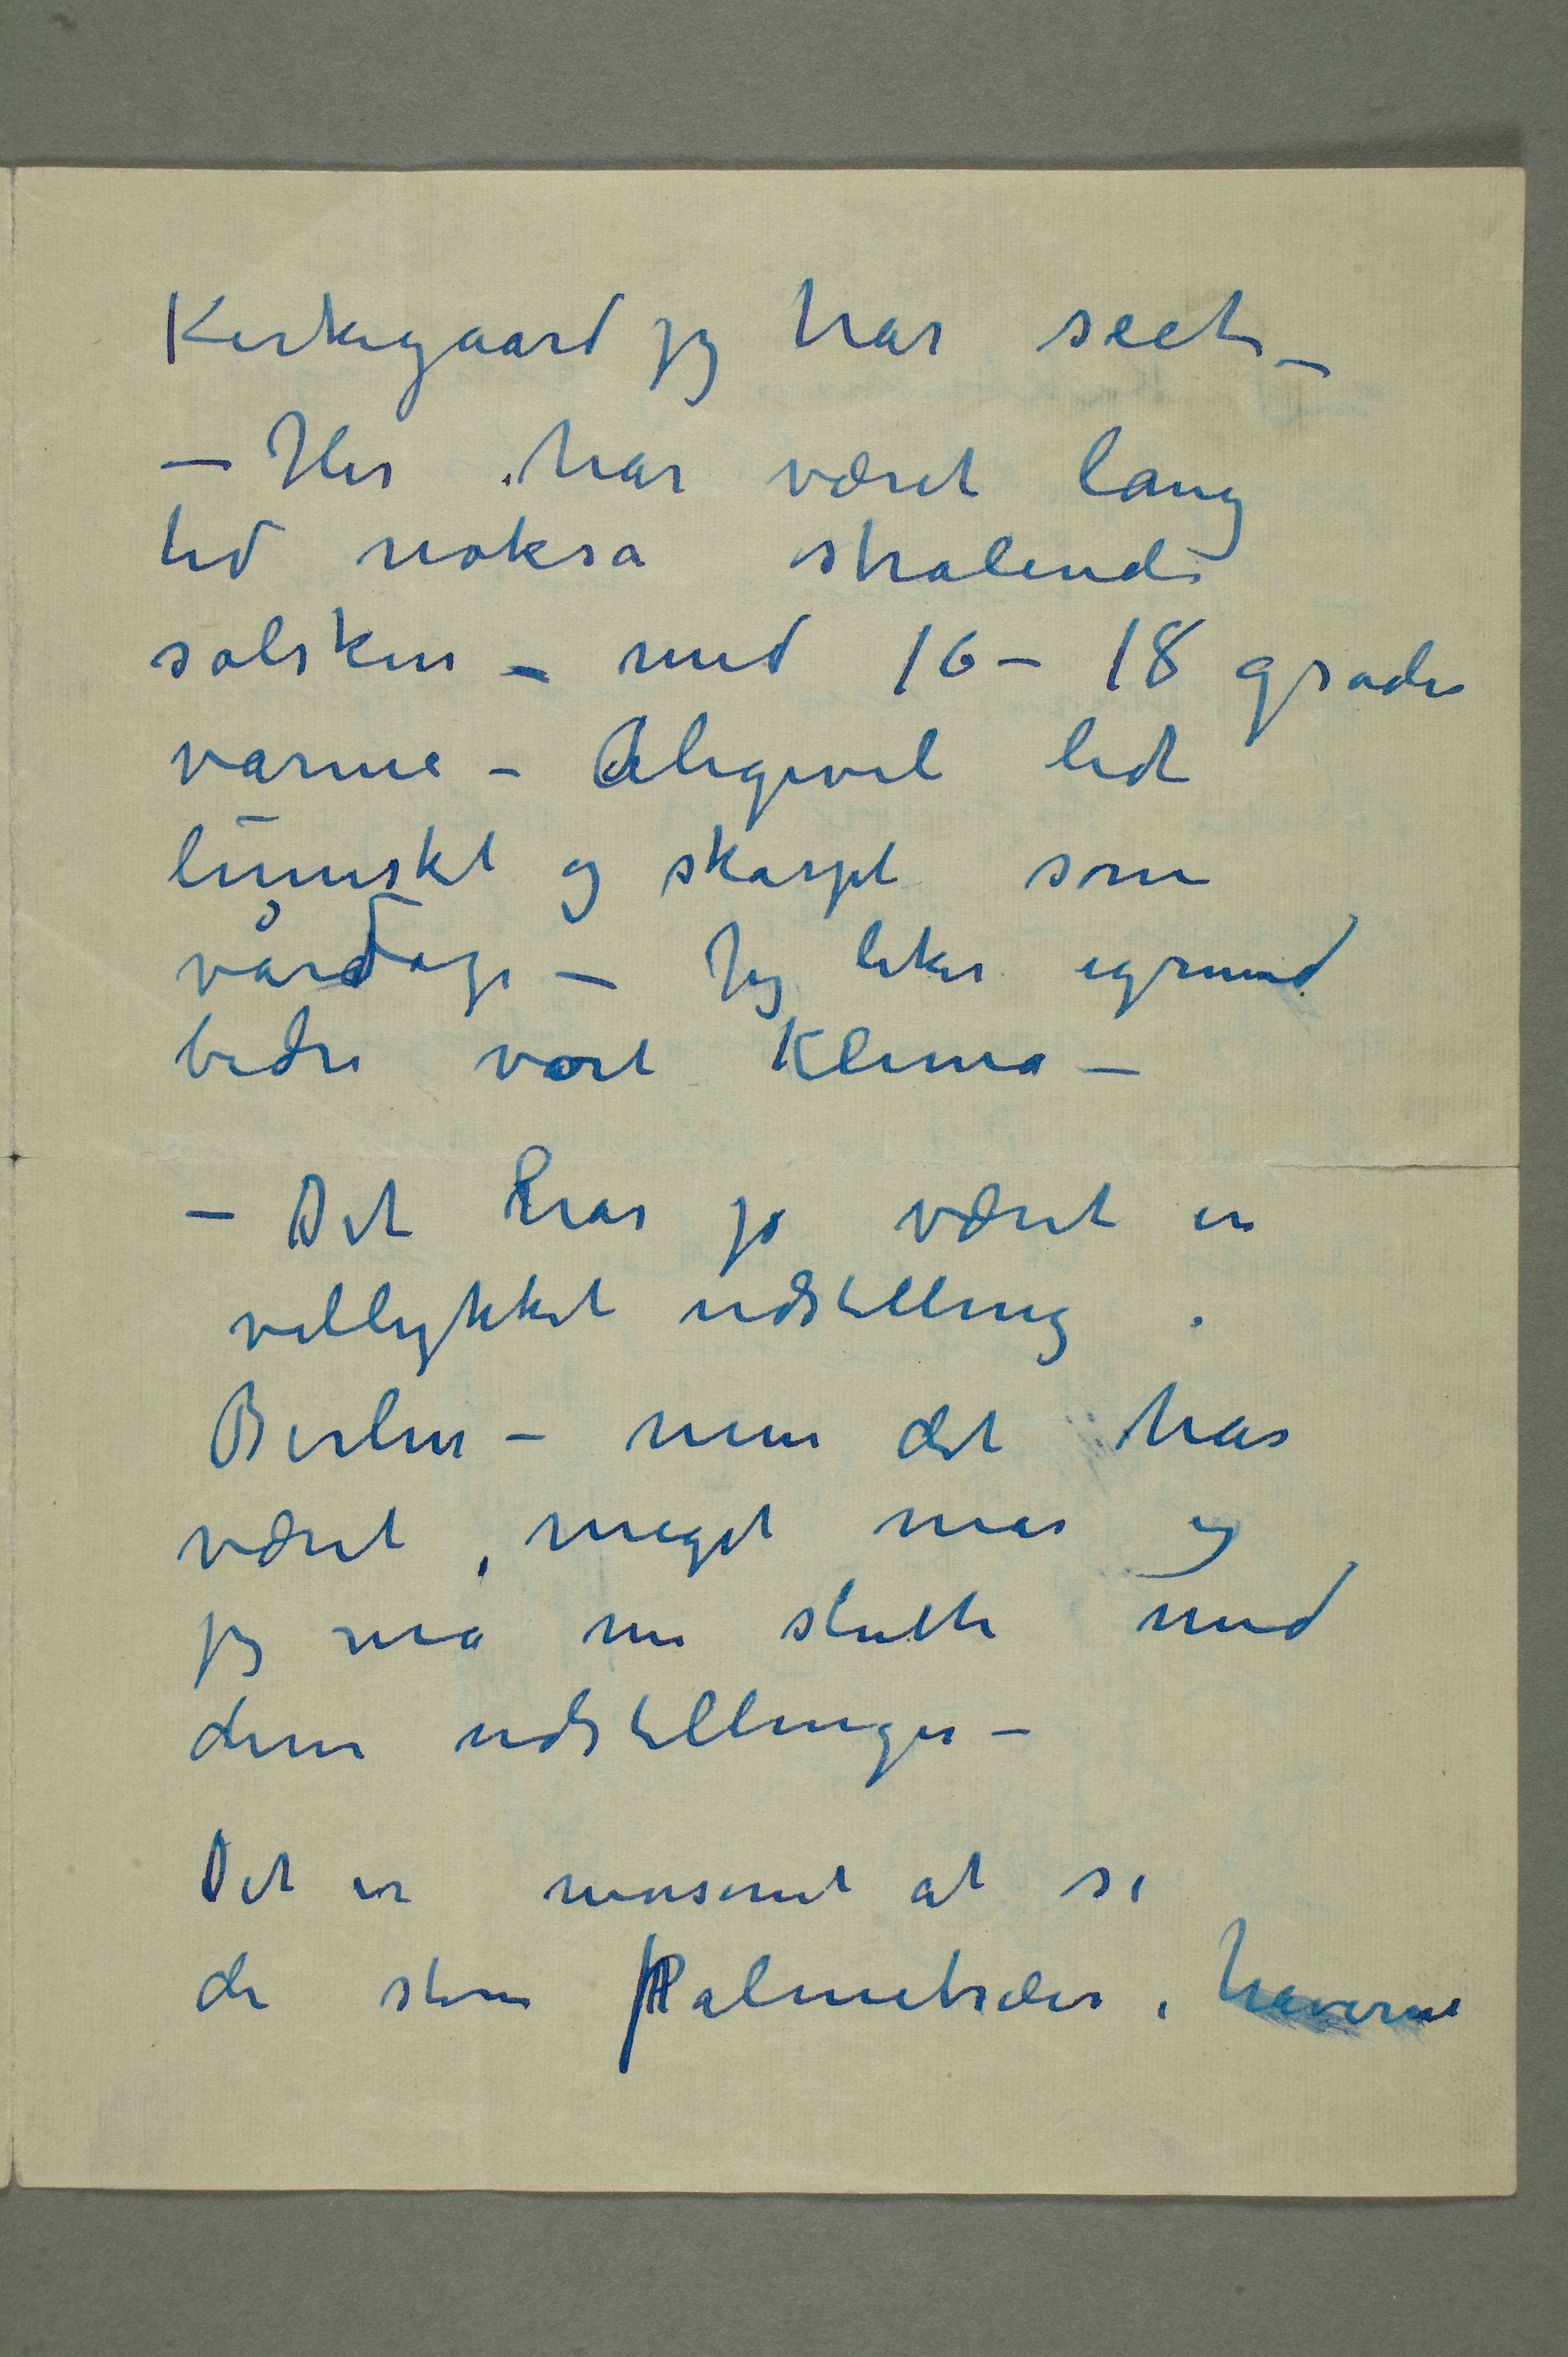 Kirkegaard jeg har seet –
– Her har været lang
tid noksa stralende
solskin – med 16 – 18 grader
varme – Aligevel lidt
lumskt og skarpt som
vårdage – Jeg liker igrund
bedre vort Klima –
– Det har jo været en
vellykket udstilling i
Berlin – men det har
været meget mas og
jeg må nu slutte med
dem udstillinger –
Det er morsomt at se
de store Palmetræer i haverne